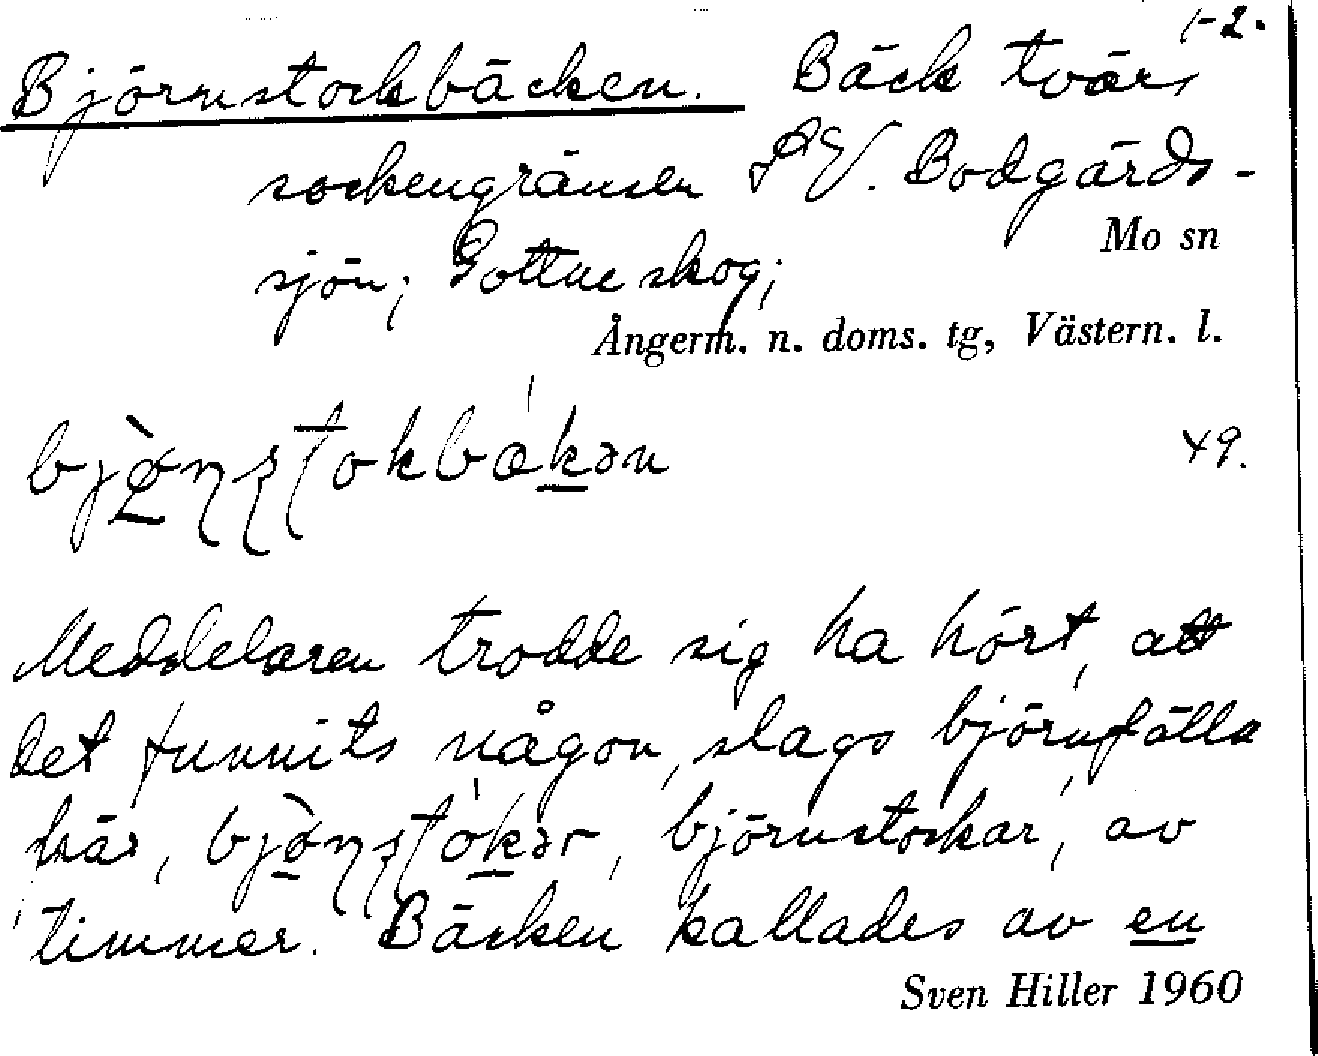 1-2.
Björnstockbäcken. Bäck tvärs
sockengränsen SV. Bodgärds-
Mo sn
sjön; Gottne skog;
Ångerm. n. doms. tg, Västern. l.
49.
Meddelaren trodde sig ha hört, att
det funnits någon slags björnfälla
här, björnstockar, av
timmer. Bäcken kallades av en
Sven Hiller 1960